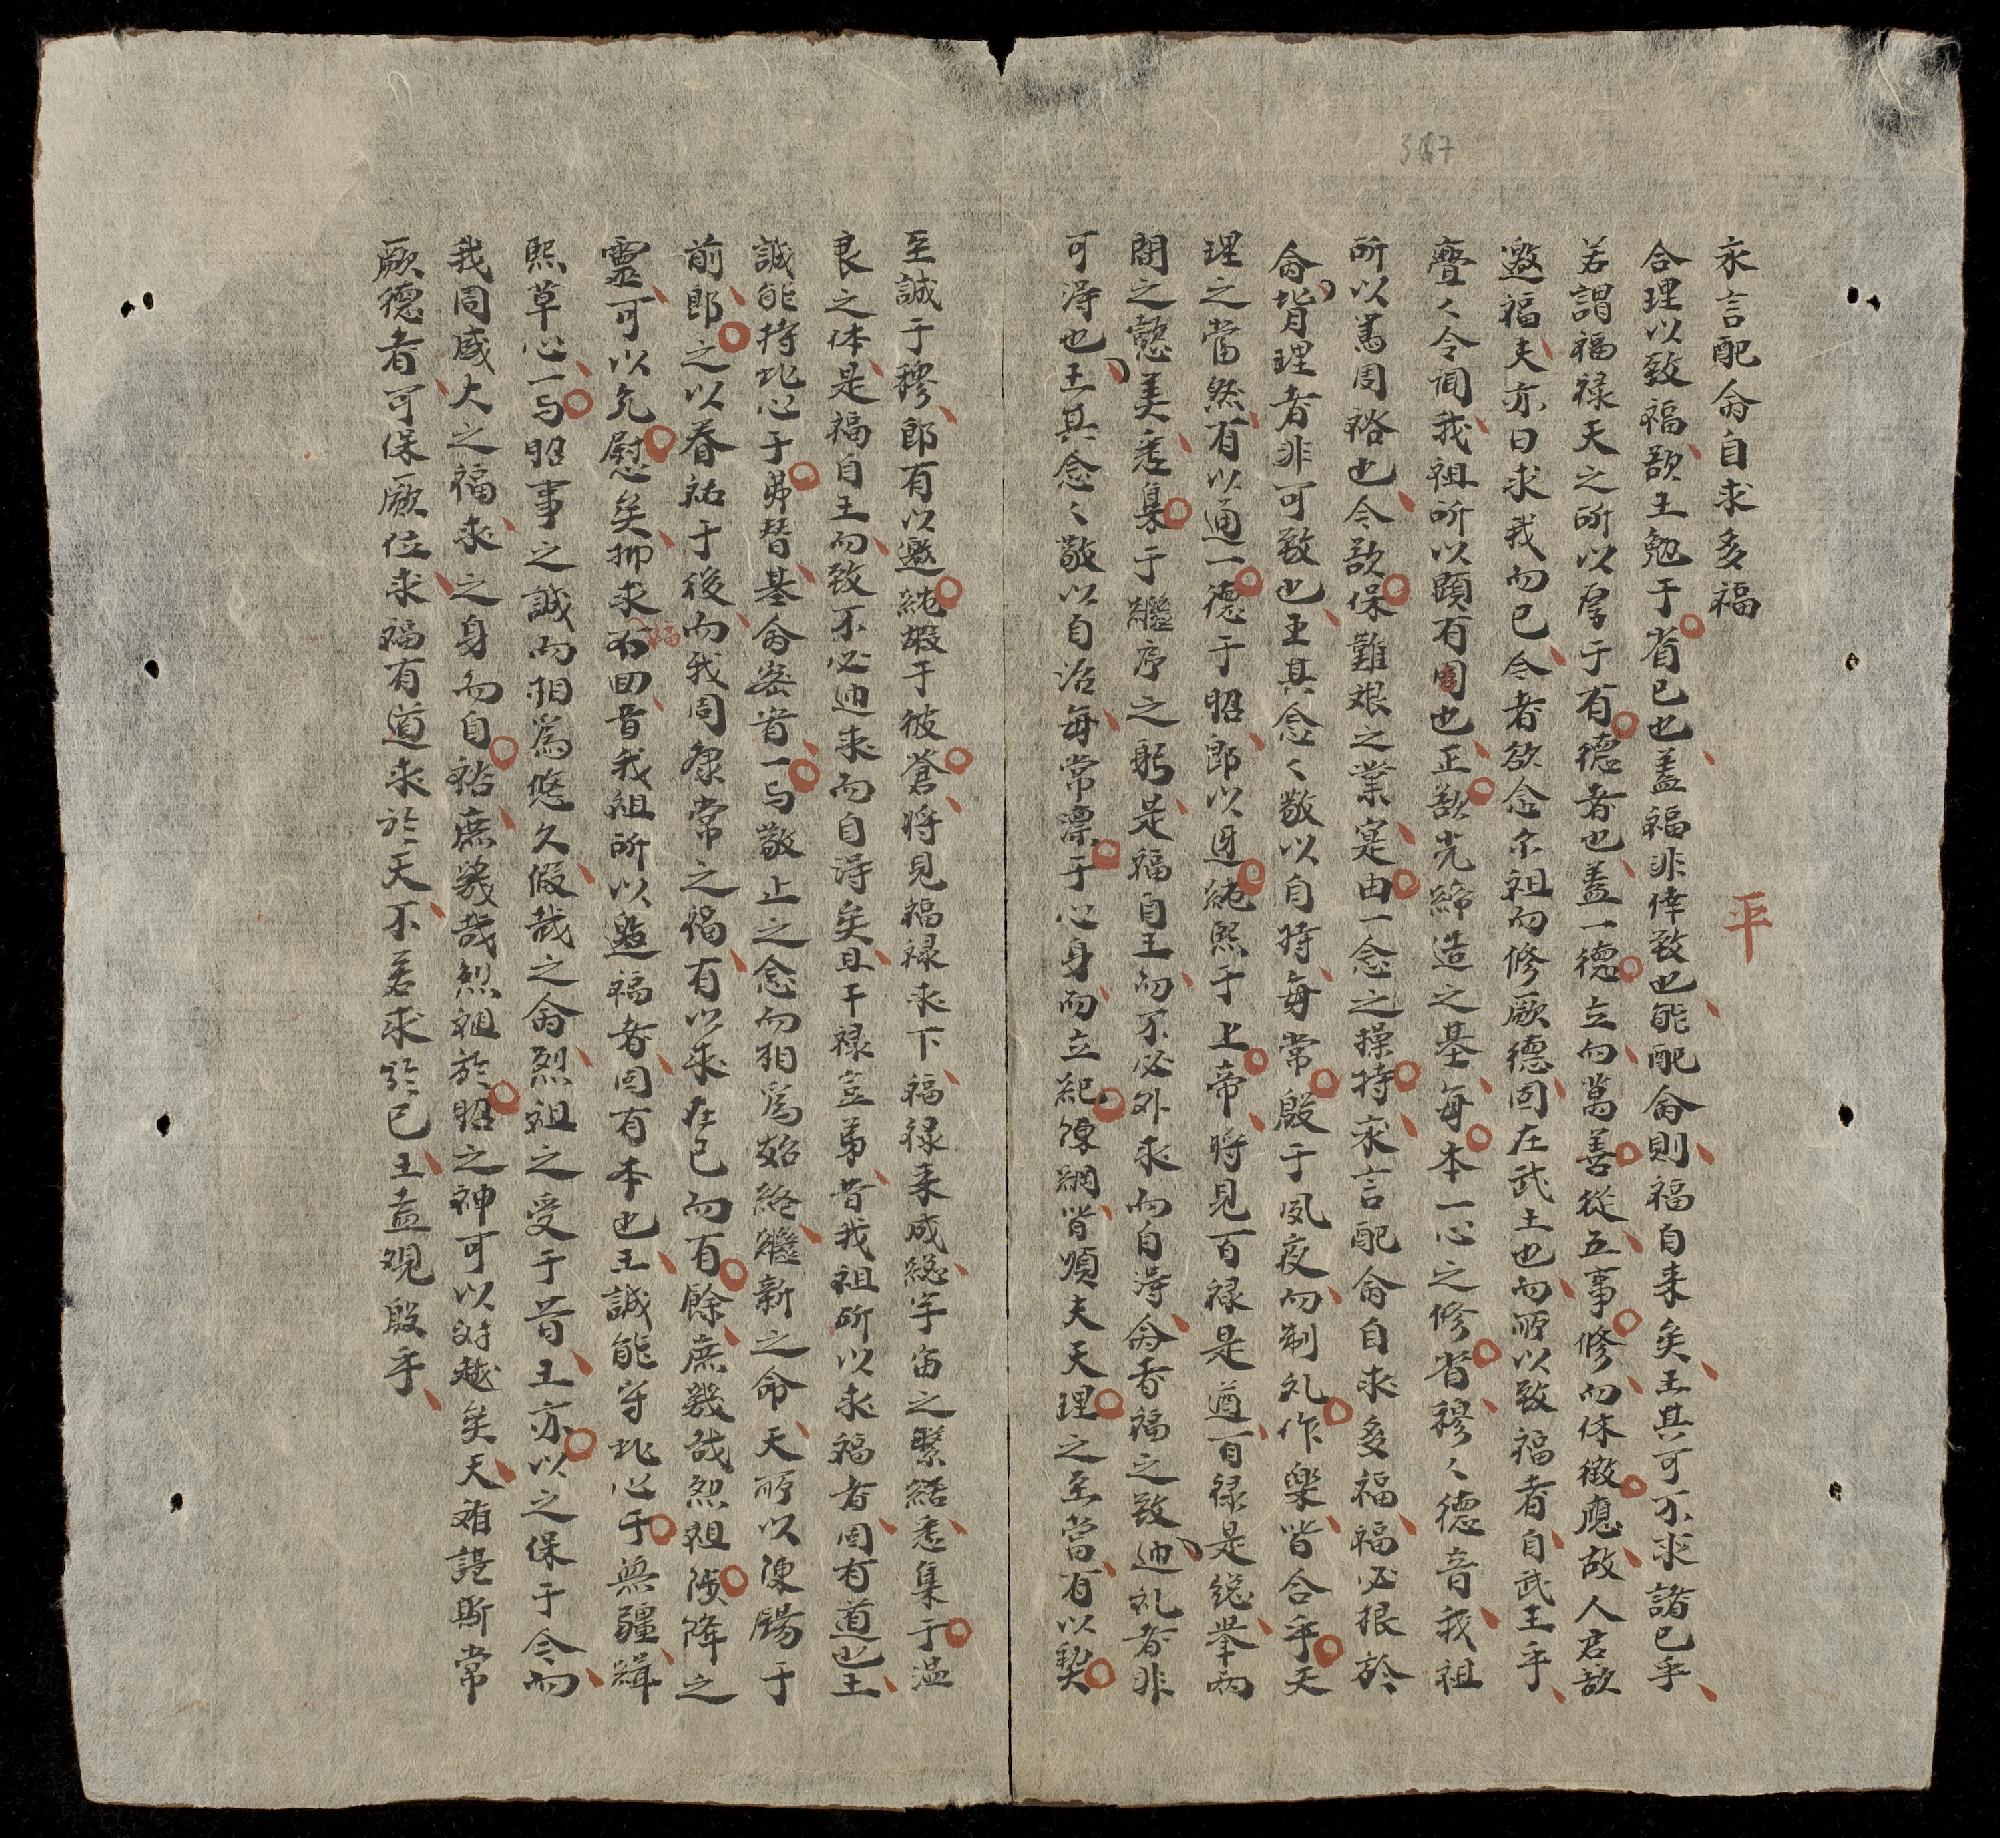 永言配命自求多福
平
合理以致福欲王勉于省已也盖福非倖致也能配命則福自来矣王其可不求諸已乎
若謂福禄天之所以厚于有德者也盖一德立而萬善從五事修而休徵應故人君欲
邀福夫亦曰求我而已今者欲念尔祖而修厥德固在武王也而所以致福者自武王乎
亹々令闻我祖所以顕有周也正欲先締造之基每本一心之修省穆々德音我祖
所以篤周祜也今欲保難艰之業寔由一念之操持永言配命自求多福福必根於
命背理者非可致也王其念々敬以自持每常殷于夙夜而制礼作樂皆合乎天
理之當然有以通一德于昭郎以迓純熙于上帝将見百禄是遒百禄是総举两
間之懿美悉集于繼序之躬是福自王而不必外求而自淂命者福之致迪礼者非
可淂也王其念々敬以自治每常凛于心身而立紀陳綱皆順夫天理之至當有以契
至誠于穆郎有以邀純嘏于彼蒼将見福禄来下福禄来成総宇宙之繁禧悉集于温
良之体是福自王而致不必迪求而自淂矣且干禄豈弟昔我祖所以求福者固有道也王
誠能持此心于弗替基命宥密一与敬止之念而相爲始終繼新之命天所以陳錫于
前郎之以眷祐于後而我周康常之福有以求在已而有餘庶幾哉烈祖陟降之
靈可以允慰矣抑求福不回昔我祖所以邀福者固有本也王誠能守此心于無疆緝
熙草心一与昭事之誠而相爲悠久假哉之命烈祖之受于昔王亦以之保于今而
我周咸大之福求之身而自裕庶幾哉烈祖於昭之神可以对越矣天難諶斯常
厥德者可保厥位求福有道求於天不若求於已王盍覌殷乎